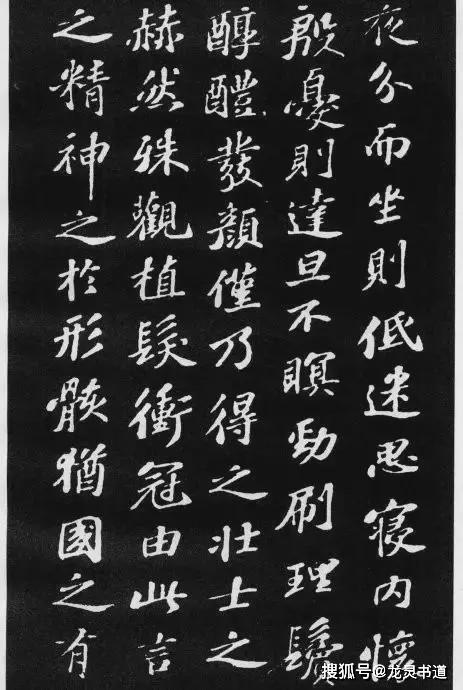 夜分而坐則低迷思寢内懷
殷憂則達旦不瞑勁刷理鬢
醇醴發顏僅乃得之壯士之
赫然殊觀植髮衝冠由此言
之精神之於形骸猶國之有
搜狐号@龙灵书道